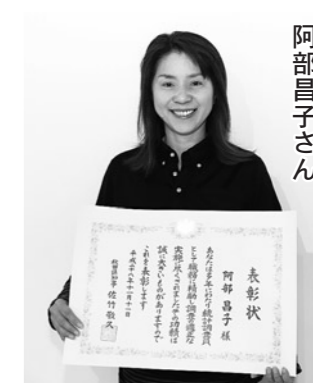 阿部昌子さん
表彰状
阿部 昌子 様
あなたは多年にわたり統計調査員
として職務に精励し調査の適正な
実施に尽くされましたその功績は
誠に大きいものがありますので
これを表彰します
平成二十八年十一月十一日
秋田県知事 佐竹敬久